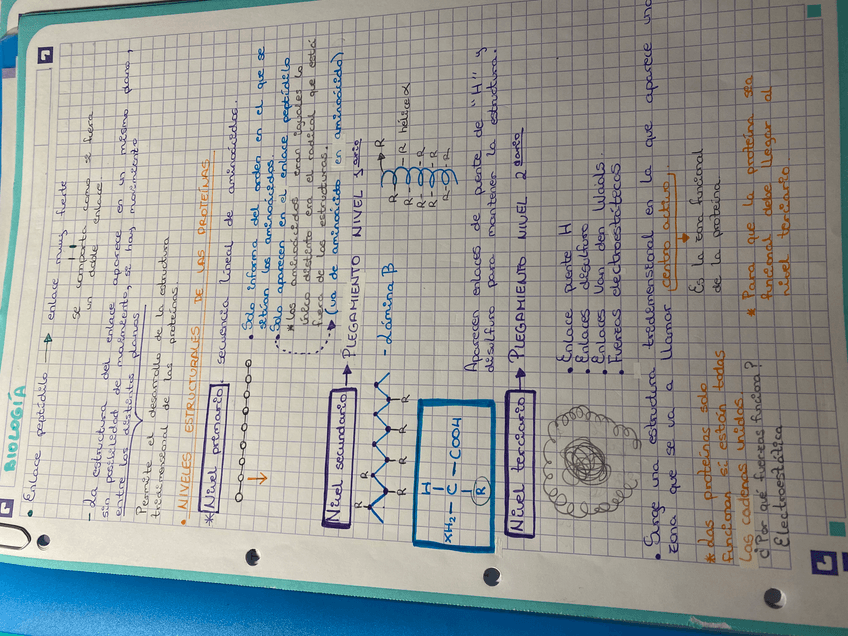 BIOLOGÍA
• Enlace peptídico → enlace muy fuerte
se comporta como si fuera
un doble enlace.
- La estructura del enlace aparece en un mismo plano,
sin posibilidad de movimiento, si hay movimiento
entre los distintos planos
Permite el desarrollo de la estructura
tridimensional de las proteínas.
• NIVELES ESTRUCTURALES DE LAS PROTEÍNAS.
* Nivel primario: secuencia lineal de aminoácidos.
• Solo informa del orden en el que se
sitúan los aminoácidos.
• Solo aparecen en el enlace peptídico
* Los aminoácidos eran iguales lo
único distinto era el radical que está
fuera de las estructuras.
(va de aminoácido en aminoácido)
Nivel secundario → PLEGAMIENTO NIVEL 1ario
R R R R
R R R
- Lámina β
R R
R - R hélice α
R - R
R - R
R - R
XH₂ - C - COOH
H
R
Aparecen enlaces de puente de "H" y
disulfuro para mantener la estructura.
Nivel terciario → PLEGAMIENTO NIVEL 2dario
• Enlace puente H
• Enlaces disulfuro
• Enlaces Van den Waals.
• Fuerzas electroestáticas
• Surge una estructura tridimensional en la que aparece una
zona que se va a llamar centro activo
Es la zona funcional
de la proteína
* Las proteínas solo
funcionan si están todas
las cadenas unidas
¿Por qué fuerzas funciona?
Electroestática
* Para que la proteína sea
funcional debe llegar al
nivel terciario